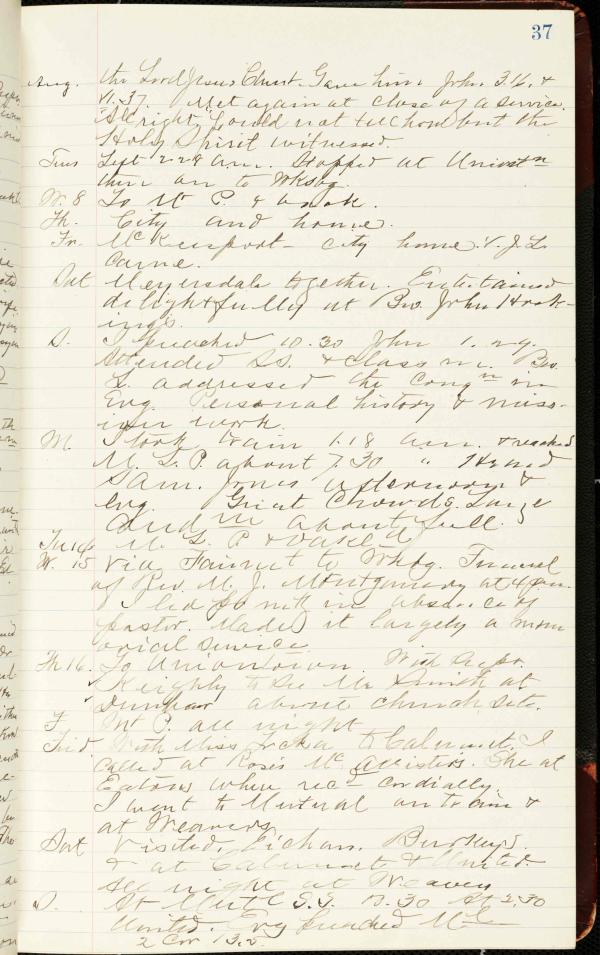 37
Aug. the Lord Jesus Christ. Gave him John 3.16. &
V1.37. Met again at close of a service.
All right. Could not tell how but the
Holy Spirit witnessed.
Tues Sept 2.28 a.m. Stopped at
then on to Wksbg.
W. 8 To Mt P. & back.
Th. City and home.
Fr. McKeesport - city home. V. J. L.
came.
Sat Meyersdale together. Entertained
delightfully at Bro. John Hock-
ing's.
S. I preached 10.30 John 1.29.
Attended S.S. & class m. Bro.
L. addressed the congn in
Evg. Personal history & miss-
ion work.
M. I took train 1.18 a.m. & reached
M. L. P. about 7.30 " Heard
Sam. Jones afternoon &
Evg. Great Crowds. Large
about full.
Tu 14 M. L. P. & Oakld
W. 15 Via Fairmt to Wksbg. Funeral
of Rev. M. J. Montgomery at 4 p.m.
I led in absence of
pastor. Made it largely a mem
orial service.
Th 16. To Uniontown. With Supt.
Keighly to see Mr Smith at
Dunbar above church site.
F Mt P. all night
With Miss to Calumet. I
called at Rose's Mc Allisters. She at
Eatons when recd cordially.
I went to Mutual on train &
at Weavers
Sat Visited. Eichars. Burkeys.
& at Calumet & United.
All night at Weavers
S. At Mutl S.S. 10.30 At 2.30
United. Evg preached
2 Cor 13.5.